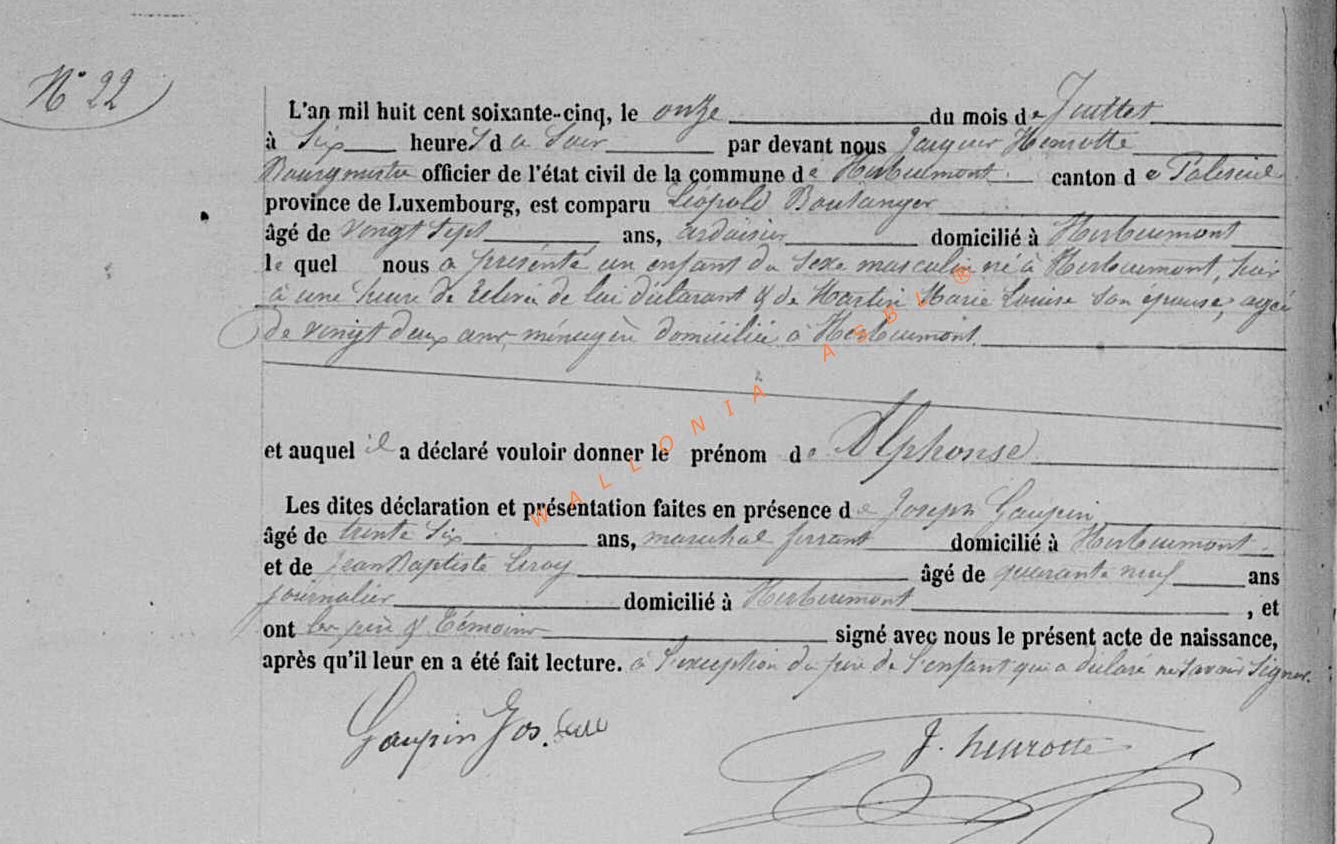 N° 22
L'an mil huit cent soixante-cinq, le onze du mois de Juillet
à six heures du Soir par devant nous Jacques Henrotte
Bourgmestre officier de l'état civil de la commune de Herbeumont canton de Paliseul
province de Luxembourg, est comparu Léopold Boulanger
âgé de vingt sept ans, ardoisier domicilié à Herbeumont
lequel nous a présenté un enfant du sexe masculin né à Herbeumont, hier
à une heure de relevée de lui déclarant & de Martin Marie Louise son épouse, agée
de vingt deux ans, ménagère domiciliée à Herbeumont.
et auquel il a déclaré vouloir donner le prénom de Alphonse
Les dites déclaration et présentation faites en présence de Joseph Gaupin
âgé de trente six ans, maréchal ferrant domicilié à Herbeumont
et de Jean Baptiste Leroy âgé de quarante neuf ans
journalier domicilié à Herbeumont, et
ont les père & témoins signé avec nous le présent acte de naissance,
après qu'il leur en a été fait lecture. à l'exception du père de l'enfant qui a déclaré ne savoir signer.
Gaupin Jos.
J. henrotte
WALLONIA ASBL ®